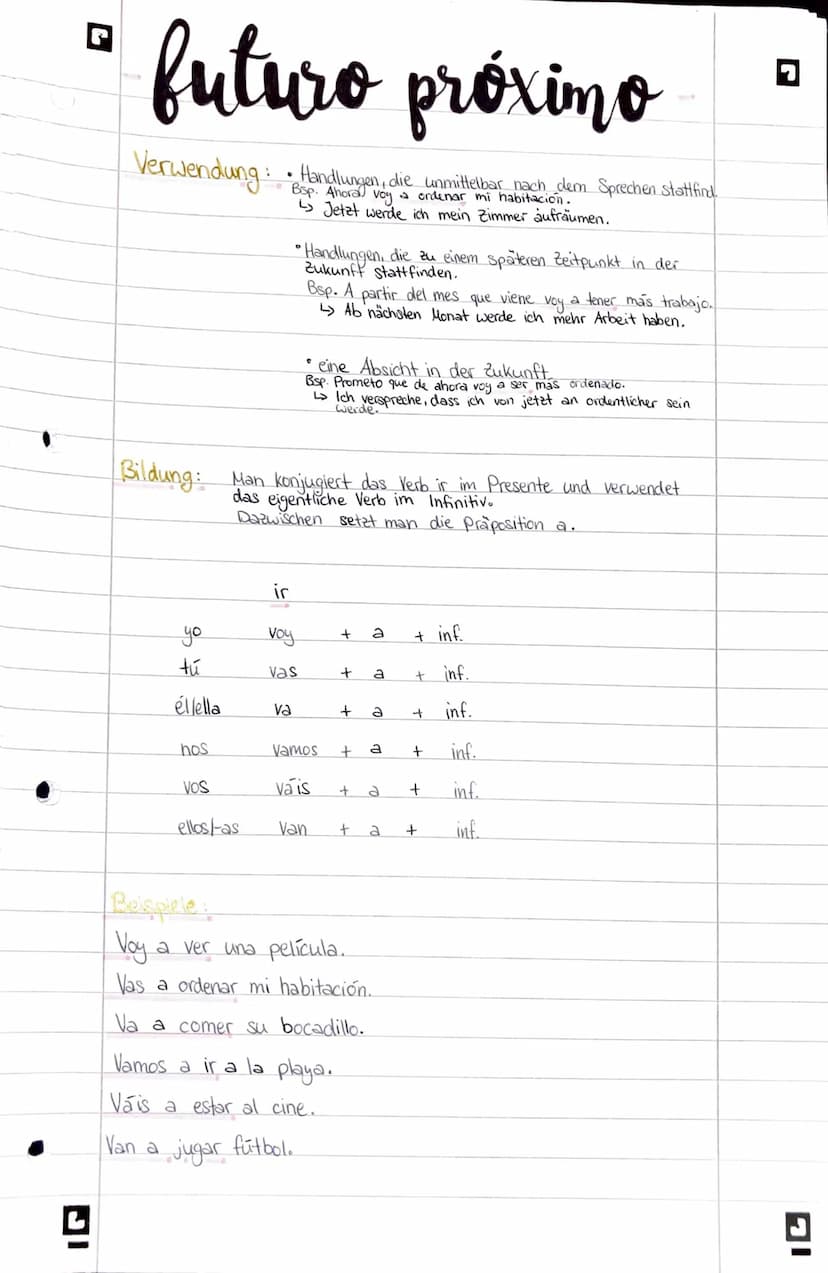 futuro próximo
Verwendung: • Handlungen, die unmittelbar nach dem Sprechen stattfind.
Bsp. Ahora voy a ordenar mi habitación.
↳ Jetzt werde ich mein Zimmer aufräumen.
• Handlungen, die zu einem späteren Zeitpunkt in der
Zukunft stattfinden.
Bsp. A partir del mes que viene voy a tener más trabajo.
↳ Ab nächsten Monat werde ich mehr Arbeit haben.
• eine Absicht in der Zukunft
Bsp. Prometo que de ahora voy a ser más ordenado.
↳ Ich verspreche, dass ich von jetzt an ordentlicher sein
werde.
Bildung: Man konjugiert das Verb ir im Presente und verwendet
das eigentliche Verb im Infinitiv.
Dazwischen setzt man die Präposition a.
ir
yo voy + a + inf.
tú vas + a + inf.
él/ella va + a + inf.
nos vamos + a + inf.
vos váis + a + inf.
ellos/-as van + a + inf.
Beispiele:
Voy a ver una película.
Vas a ordenar mi habitación.
Va a comer su bocadillo.
Vamos a ir a la playa.
Váis a estar al cine.
Van a jugar fútbol.